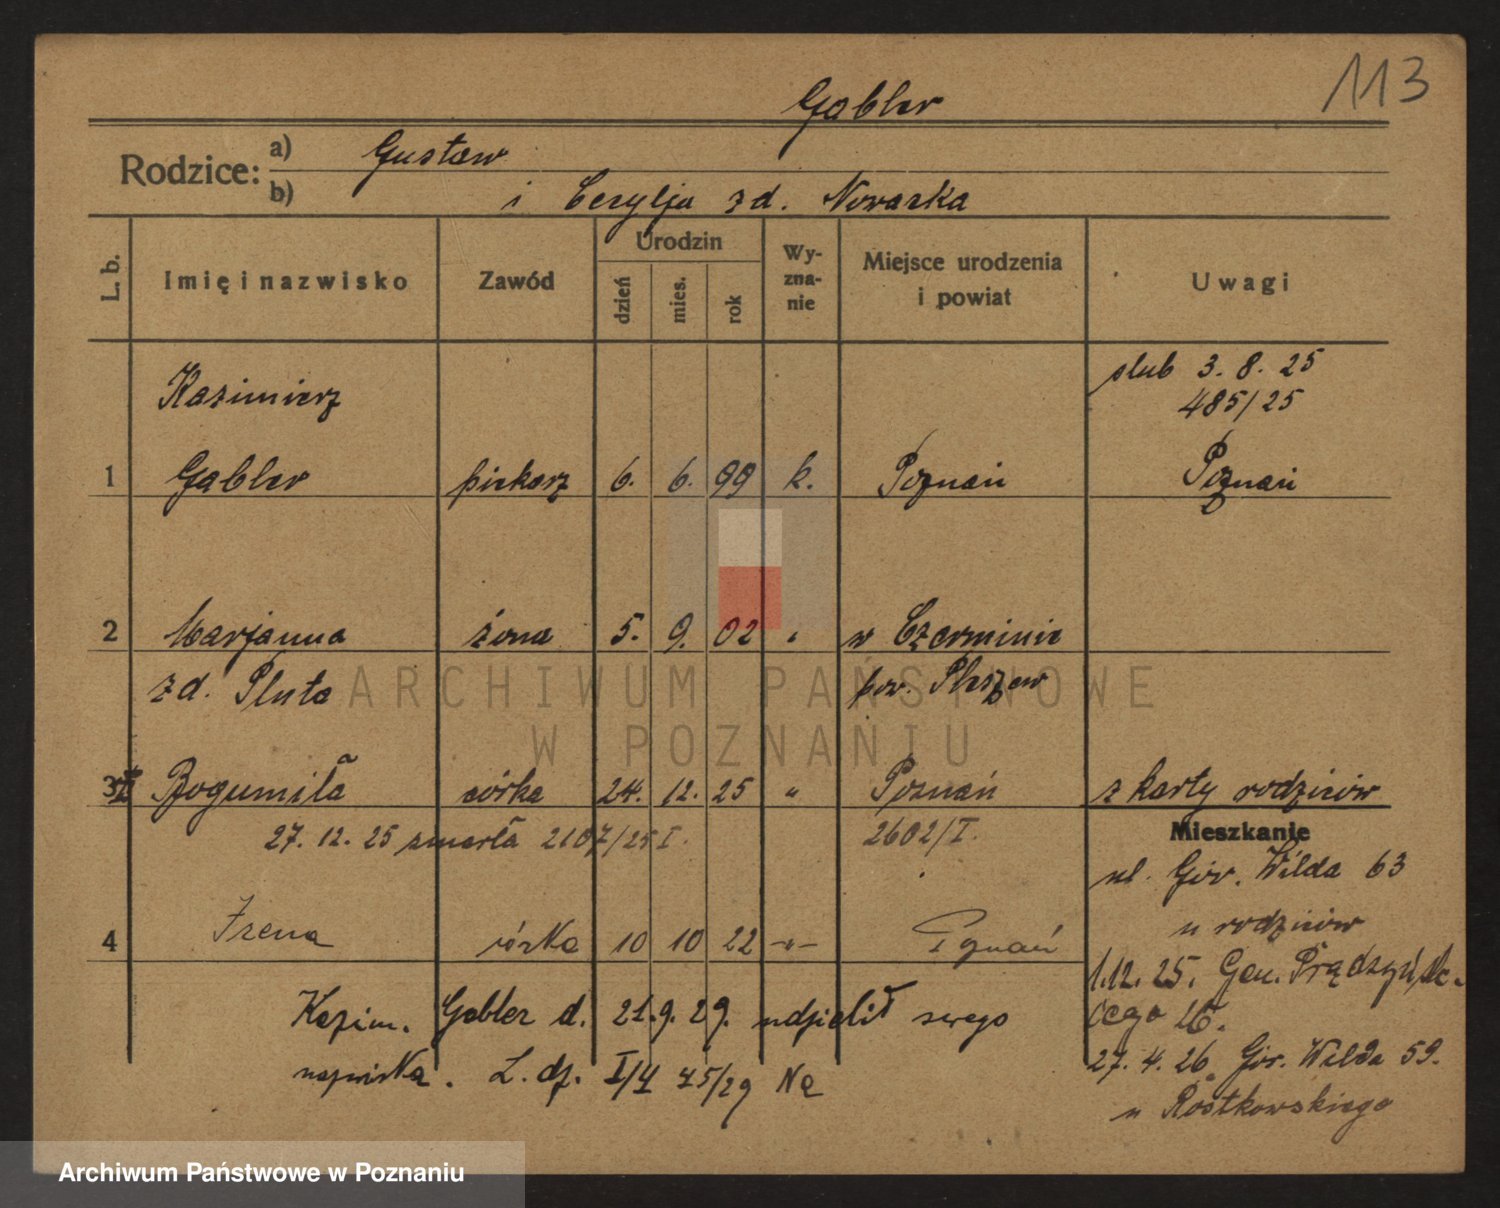 113
Gabler
Rodzice: a) Gustaw
b) i Cecylja zd. Nowacka
L. b. Imię i nazwisko Zawód Urodzin dzień mies. rok Wy-zna-nie Miejsce urodzenia i powiat Uwagi
Kazimierz ślub 3. 8. 25
485/25
1 Gabler piekarz 6. 6. 99 k. Poznań Poznań
2 Marjanna żona 5. 9. 02 " w Czerminie
zd. Pluta pow. Pleszew
ARCHIWUM PAŃSTWOWE
W POZNANIU
3 Bogumiła córka 24. 12. 25 " Poznań z karty rodziców
27. 12. 25 zmarła 2107/25 I. 2602/I.
Mieszkanie
ul. Gór. Wilda 63
u rodziców
4 Irena córka 10 10 22 -"- Poznań
1.12. 25. Gen. Prądzyńskiego 26.
Kazim. Gabler d. 21. 9. 29. udzielił swego
nazwiska. L. dz. I/V 45/29 Na
27. 4. 26 Gór. Wilda 59.
u Rostkowskiego
Archiwum Państwowe w Poznaniu